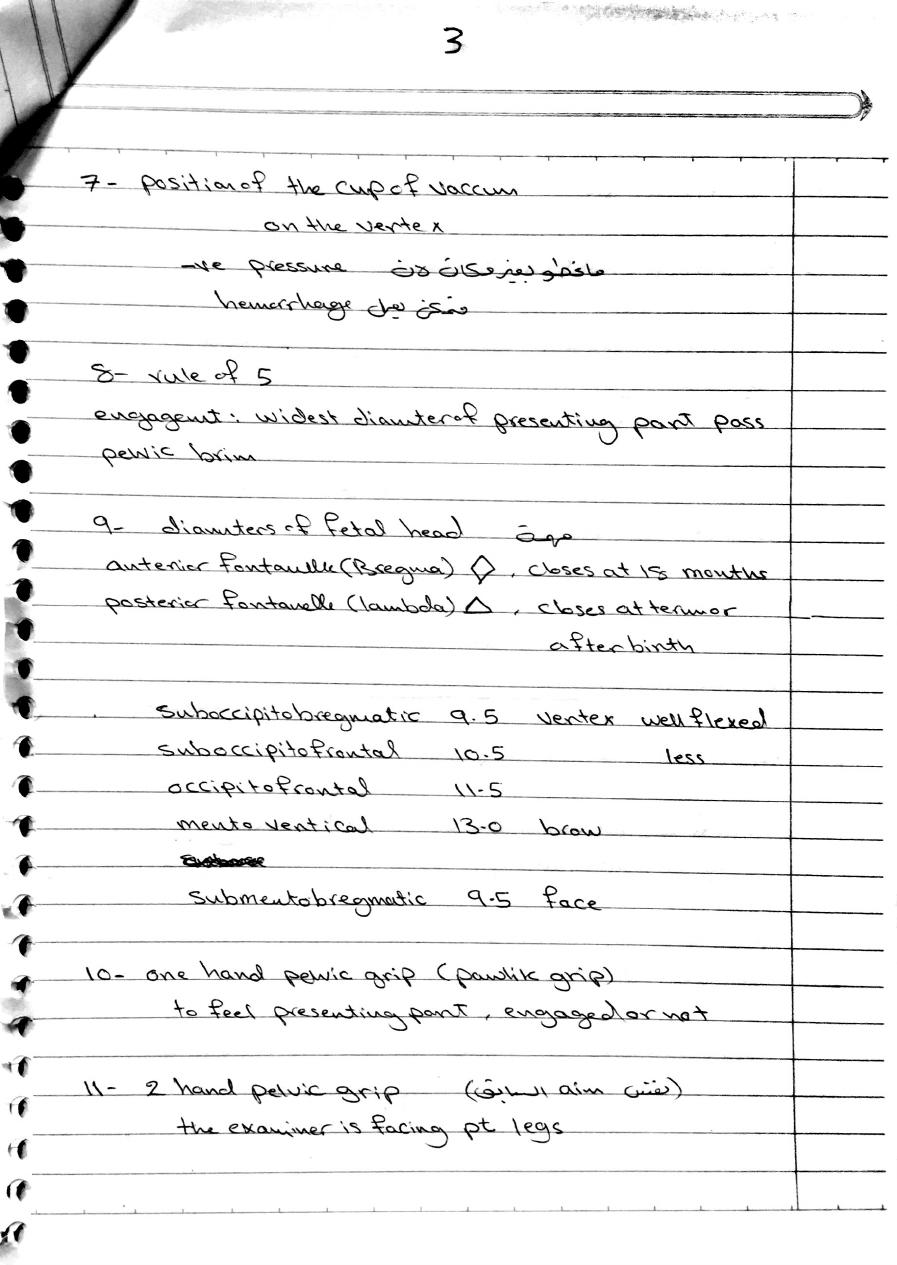 3
7- position of the cup of vaccum
on the vertex
-ve pressure ماخطو بغير مكان لان
hemorrhage ممكن يعمل
8- rule of 5
engagemt: widest diameter of presenting part pass
pelvic brim
9- diamters of fetal head مهمة
anterior fontanelle (Bregma) ◇, closes at 18 months
posterior fontanelle (lambda) △, closes at term or
after birth
suboccipitobregmatic 9.5 vertex well flexed
suboccipitofrontal 10.5 less
occipitofrontal 11.5
mento vertical 13.0 brow
submentobregmatic 9.5 face
10- one hand pelvic grip (pawlik grip)
to feel presenting part, engaged or not
11- 2 hand pelvic grip (نفس aim السابق)
the examiner is facing pt legs